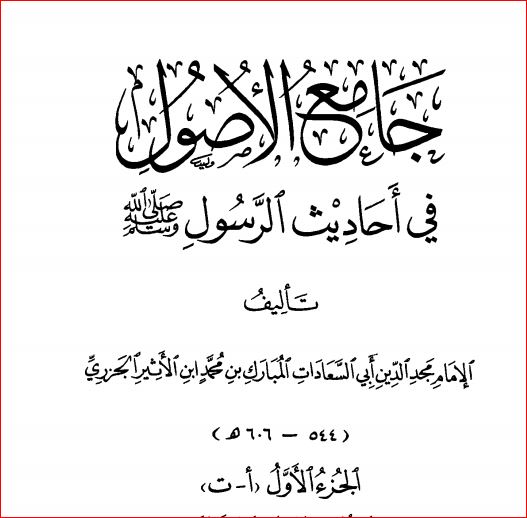 جَامِعُ الأُصُولِ
في أَحَادِيْثِ الرَّسُولِ ﷺ
تَأليفُ
الإمَامِ مَجدِ الدِّينِ أَبي السَّعَادَاتِ المُبَارَكِ بنِ مُحَمَّدٍ ابنِ الأَثيرِ الجَزَرِيِّ
(٥٤٤ – ٦٠٦ هـ)
الجُزءُ الأَوَّلُ (أ-ت)